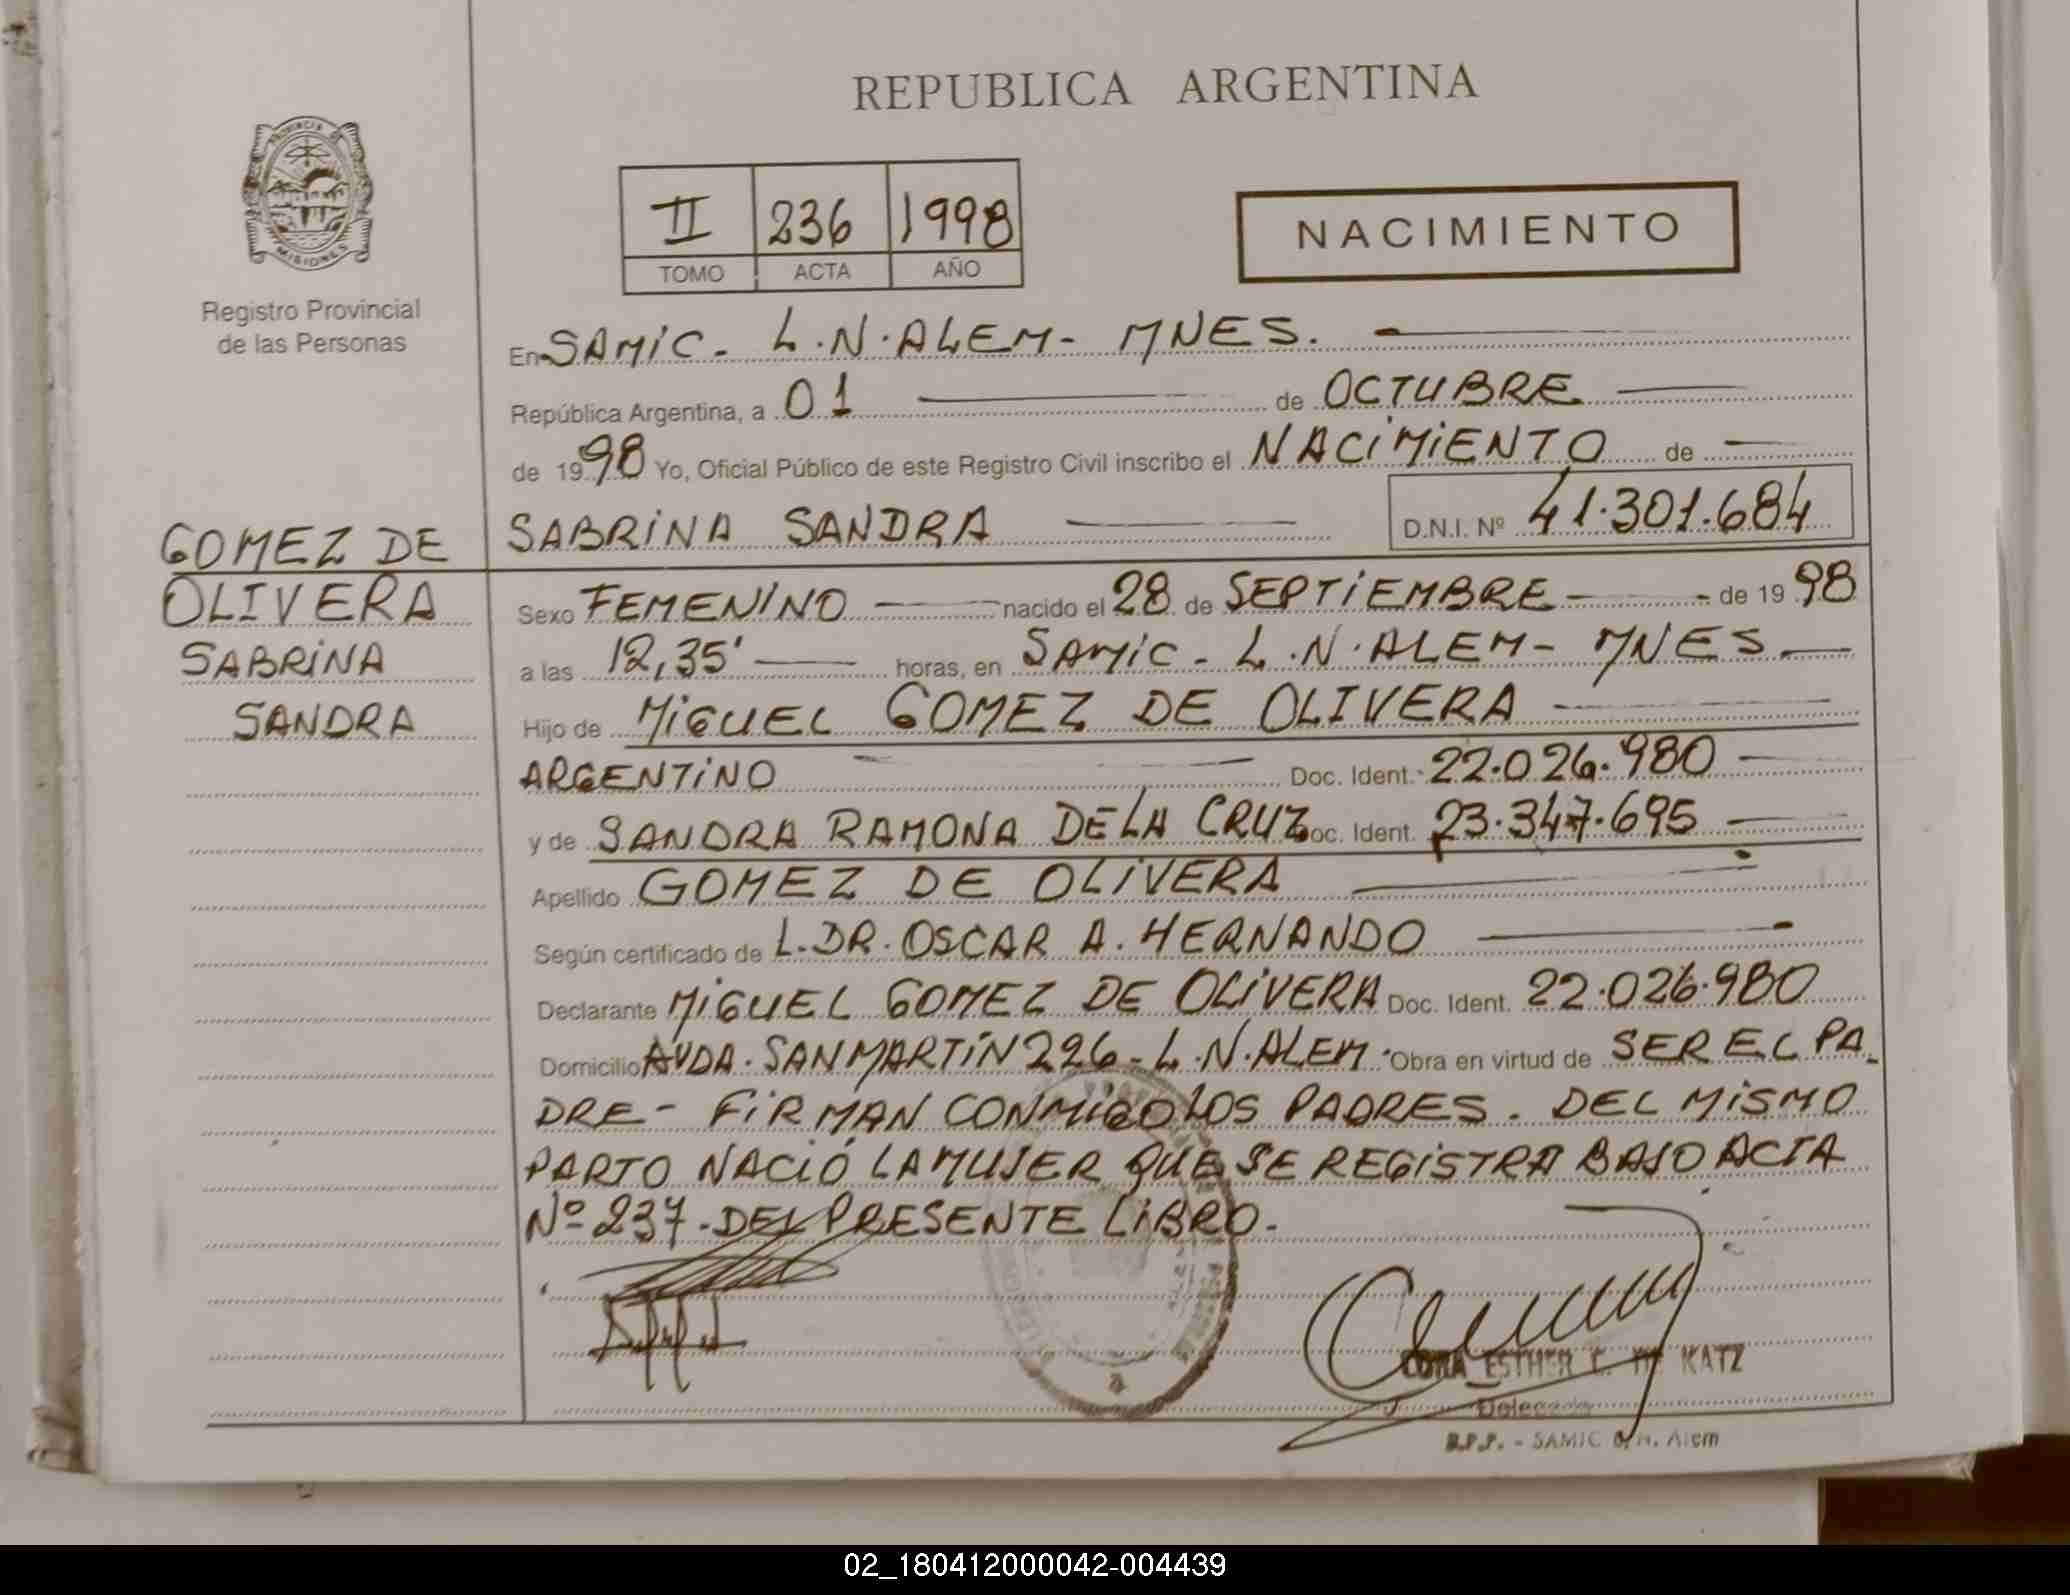 REPUBLICA ARGENTINA
PROVINCIA DE
MISIONES
Registro Provincial
de las Personas
II 236 1998
TOMO ACTA AÑO
NACIMIENTO
En SAMIC - L.N.ALEM - MNES.
República Argentina, a 01 de OCTUBRE
de 1998 Yo, Oficial Público de este Registro Civil inscribo el NACIMIENTO de
SABRINA SANDRA D.N.I. Nº 41.301.684
GOMEZ DE
OLIVERA
SABRINA
SANDRA
Sexo FEMENINO nacido el 28 de SEPTIEMBRE de 1998
a las 12,35' horas, en SAMIC - L.N.ALEM - MNES
Hijo de MIGUEL GOMEZ DE OLIVERA
ARGENTINO Doc. Ident. 22.026.980
y de SANDRA RAMONA DE LA CRUZ Doc. Ident. 23.347.695
Apellido GOMEZ DE OLIVERA
Según certificado de L.DR. OSCAR A. HERNANDO
Declarante MIGUEL GOMEZ DE OLIVERA Doc. Ident. 22.026.980
Domicilio AVDA. SAN MARTIN 226 - L.N.ALEM. Obra en virtud de SER EL PA-
DRE - FIRMAN CONMIGO LOS PADRES. DEL MISMO
PARTO NACIÓ LA MUJER QUE SE REGISTRA BAJO ACTA
Nº 237. DEL PRESENTE LIBRO.
ESTHER KATZ
R.P.P. - SAMIC Alem
02_180412000042-004439